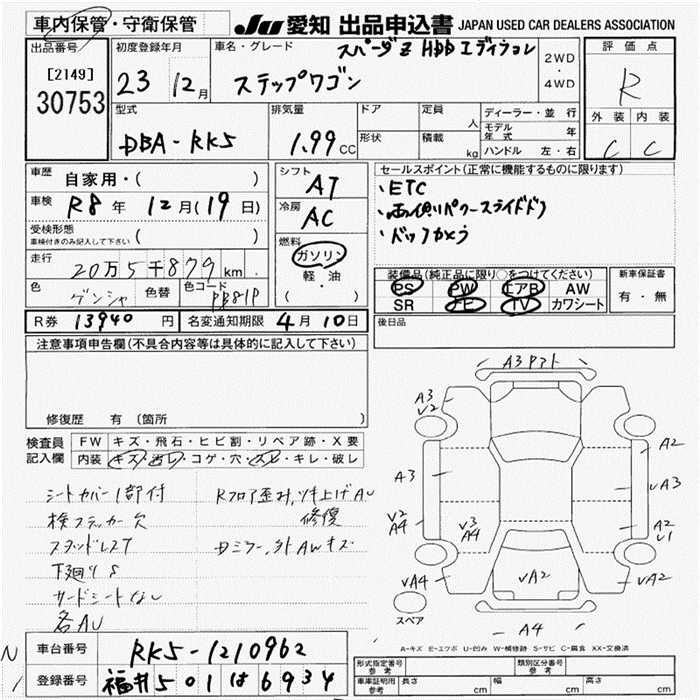 車内保管・守衛保管 JU 愛知 出品申込書 JAPAN USED CAR DEALERS ASSOCIATION
出品番号 初度登録年月 車名・グレード スパーダZ HDDエディション 2WD・4WD 評価点
[2149] 30753 23 12月 ステップワゴン R
型式 排気量 ドア 定員 人 ディーラー・並行 外装 内装
DBA-RK5 1.99 CC 形状 積載 kg モデル年式 年 ハンドル 左・右 C C
車歴 自家用・( ) シフト AT セールスポイント(正常に機能するものに限ります)
車検 R8年 12月(19日) 冷房 AC ・ETC
受検形態 車検付きのみ記入して下さい ( ) ・両側パワースライドドア
燃料 ガソリン 軽・油 ( ・ ) ・バックカメラ
走行 20万5千879km
色 ゲンシャ 色替 色コード PB81P
装備品(純正品に限り○をつけてください) 新車保証書
PS PW エアB AW 有・無
SR ナビ TV カワシート
R券 13940円 名変通知期限 4月10日 後日品
注意事項申告欄(不具合内容等は具体的に記入して下さい)
修復歴 有 〔箇所 〕
検査員記入欄 FW キズ・飛石・ヒビ割・リペア跡・X要
内装 キズ・汚レ・コゲ・穴・スレ・キレ・破レ
シートカバー1部付 Rフロア歪み,ツキ上げAU
検ステッカー欠 修復
スタッドレスT 母ミラー,外AWキズ
下廻りS
サードシートなし
各AU
A3 ワレ
A3 V2 A2
A3 VA3
V2 A4 V3 A4 A2 U1
VA4 VA2 VA2
スペア A4
A-キズ E-エクボ U-凹み W-補修跡 S-サビ C-腐食 XX-交換済
車台番号 RK5-1210962
登録番号 福井501は6934
形式指定番号 参考 類別区分番号 参考
車庫証明用 参考 長さ cm 幅 cm 高さ cm